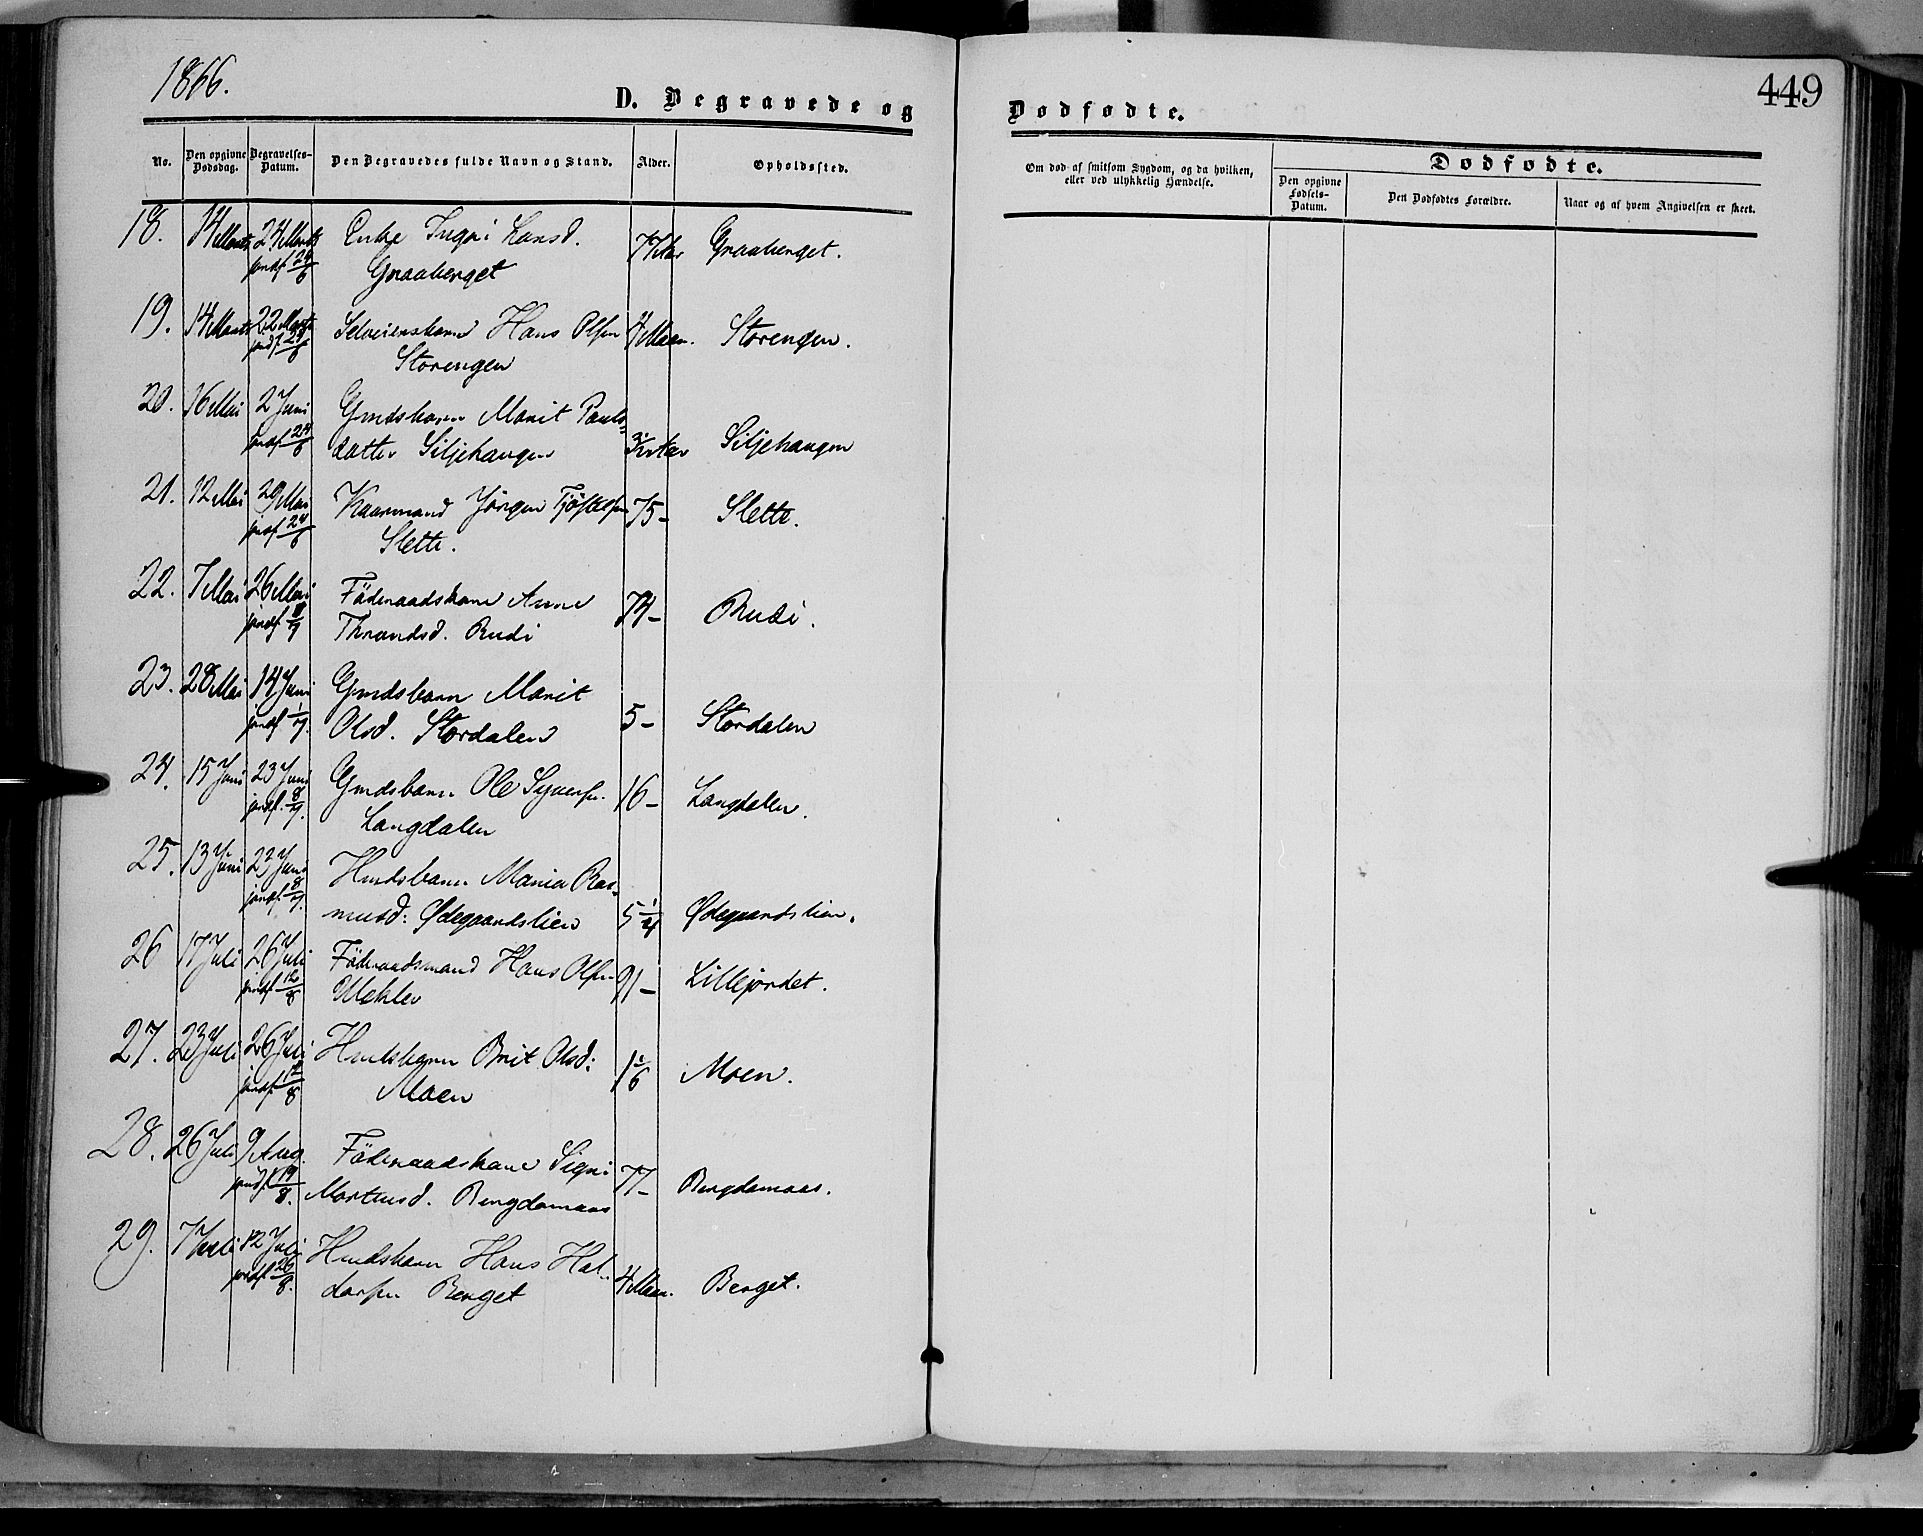 1866.
D. Begravede og
Dødfødte.
449
No.
Den opgivne Dødsdag.
Begravelses-Datum.
Den Begravedes fulde Navn og Stand.
Alder.
Opholdssted.
Om død af smitsom Sygdom, og da hvilken,
eller ved ulykkelig Hændelse.
Dødfødte.
Den opgivne Fødsels-Datum.
Den Dødfødtes Forældre.
Naar og af hvem Angivelsen er skeet.
18. 14 Marts 24 Marts Enke Ingri Larsd. 77 Aar Graaberget.
jordf. 24/6 Graaberget
19. 14 Marts 22 Marts Selveierbarn Hans Olsen 4 Maan. Storengen.
jordf. 24/6 Storengen
20. 16 Mai 2 Juni Gmdsbarn Marit Pauls-
jordf. 24/6 datter Siljehaugen Aar Siljehaugen
21. 12 Mai 29 Mai Kaarmand Jörgen 75 - Slette.
jordf. 24/6 Slette.
22. 7 Mai 26 Mai Föderaadskone Anne 74 - Rudi.
jordf. Thrandsd. Rudi
23. 28 Mai 14 Juni Gmdsbarn Marit
jordf. 1/7. Olsd. Stordalen 5 - Stordalen
24. 15 Juni 23 Juni Gmdsbarn Ole Syversen 16 - Langdalen.
jordf. 8/7. Langdalen
25. 13 Juni 23 Juni Hmdsbarn Maria Ras-
jordf. 8/7. musd: Ødegaardslien 5 1/4 Ødegaardslien.
26 17 Juli 26 Juli Föderaadsmand Hans Olsen 91 - Lillejordet.
jordf. 12/8
27. 23 Juli 26 Juli Hmdsbarn Brit Olsd: 1/6 Moen.
jordf. 12/8 Moen
28. 26 Juli 9 Aug. Föderaadskone Signi 77 - Bergdamaas.
jordf. 19/8. Mortensd. Bergdamaas
29. 7 Juli 12 Juli Hmdsbarn Hans Hal-
jordf. 26/8. dorsen Berget 4 Maan. Berget.